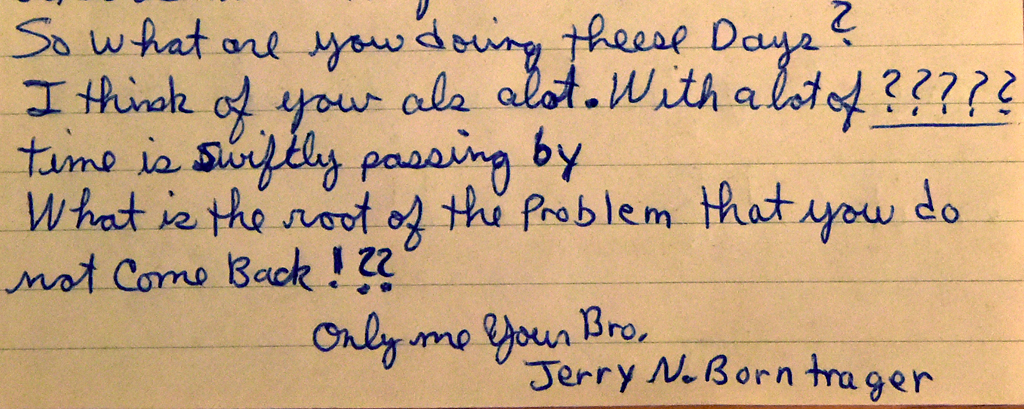 So what are you doing theese Days?
I think of you als alot. With a lot of ?????
time is swiftly passing by
What is the root of the Problem that you do
not Come Back !??
Only me Your Bro.
Jerry N. Borntrager